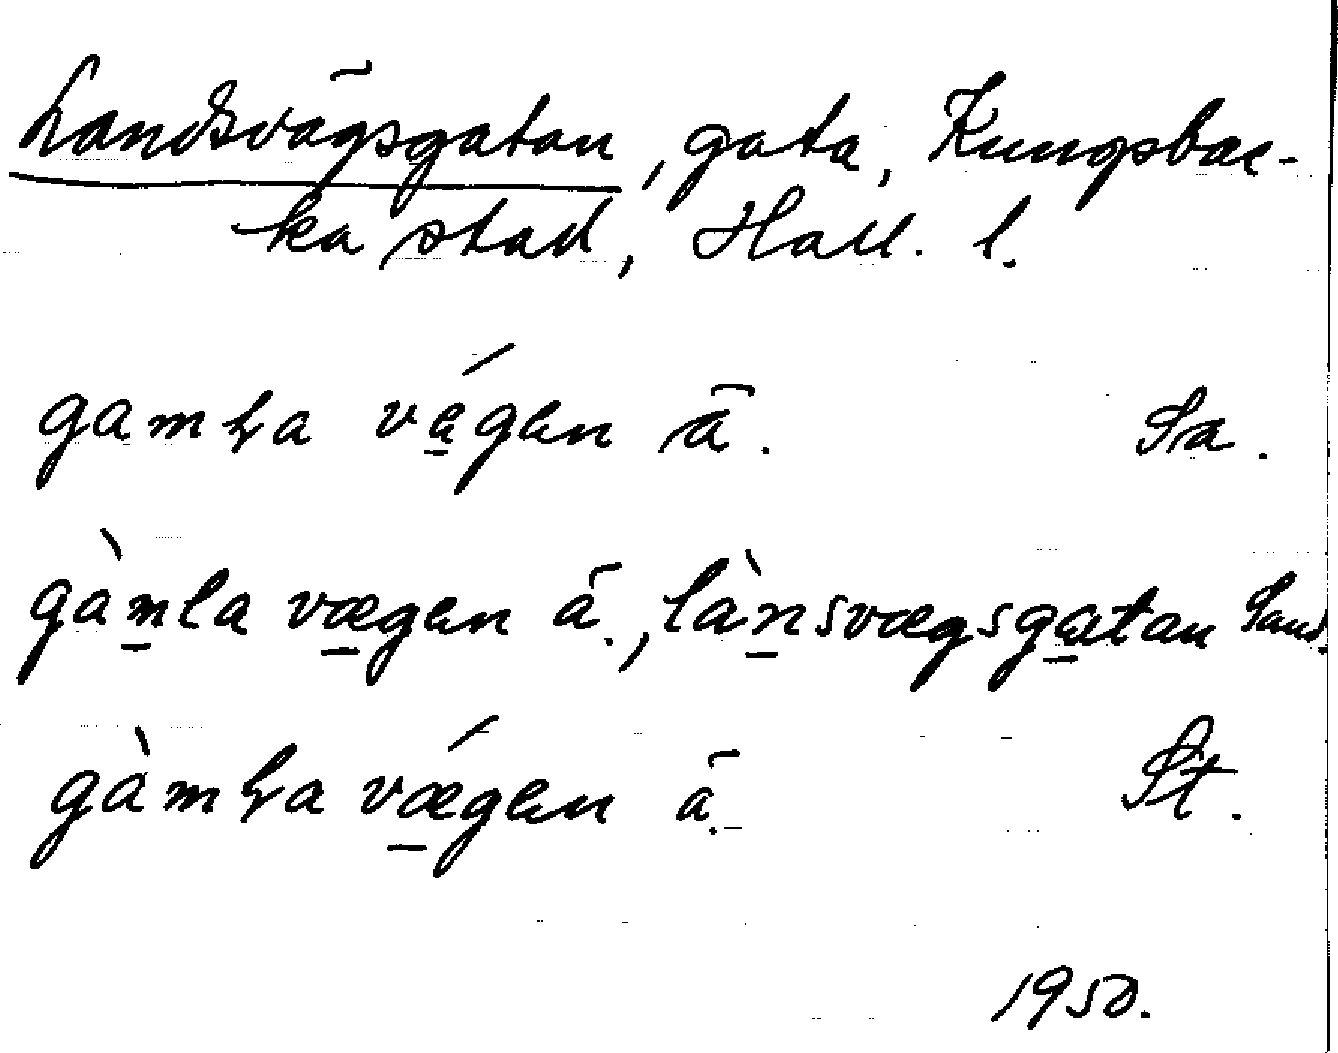 Landsvägsgatan, gata, Kungsbac-
ka stad, Hall. l.
gamḷa vä́gen ā. Sa.
gàm̱la væ̱gen ā., làṉsvægsga̱tan Sand.
gàmḷa vǽ̱gen ā. St.
1950.